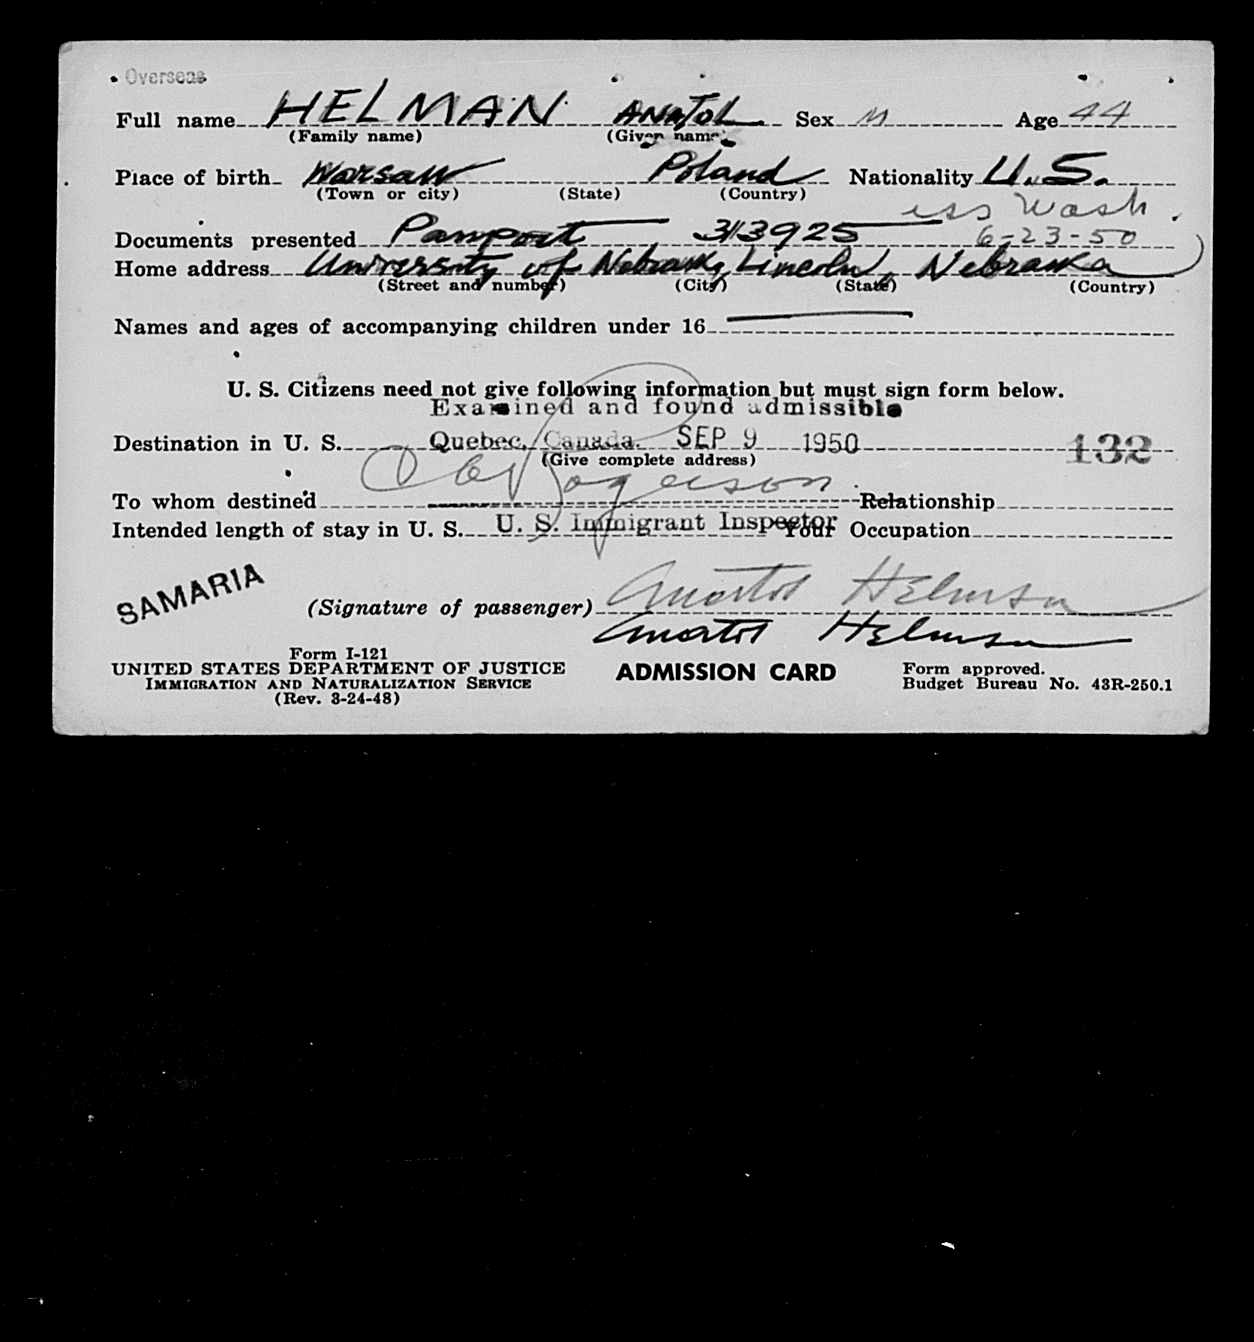 Overseas
Full name HELMAN ANATOL Sex M Age 44
(Family name) (Given name)
Place of birth Warsaw Poland Nationality U.S.
(Town or city) (State) (Country)
iss Wash.
Documents presented Passport 313925 6-23-50
Home address University of Nebraska, Lincoln, Nebraska
(Street and number) (City) (State) (Country)
Names and ages of accompanying children under 16
U. S. Citizens need not give following information but must sign form below.
Examined and found admissible
Destination in U. S. Quebec, Canada. SEP 9 1950 132
(Give complete address)
To whom destined Rogerson Relationship
Intended length of stay in U. S. U. S. Immigrant Inspector Your Occupation
SAMARIA
(Signature of passenger) Anatol Helman
Anatol Helman
Form I-121
UNITED STATES DEPARTMENT OF JUSTICE ADMISSION CARD Form approved.
IMMIGRATION AND NATURALIZATION SERVICE Budget Bureau No. 43R-250.1
(Rev. 3-24-48)